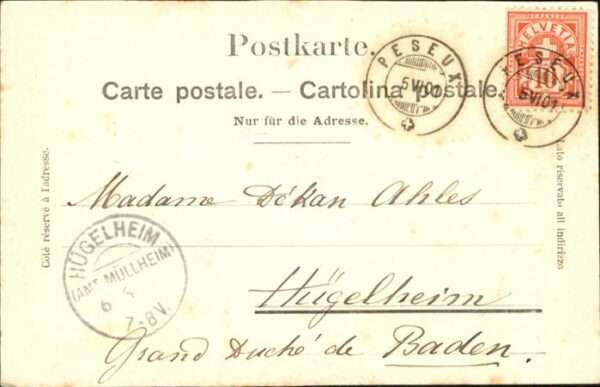 Postkarte.
HELVETIA
10
PESEUX
5 VI 01
PESEUX
5 VI 01
Carte postale. — Cartolina postale.
Nur für die Adresse.
Côté réservé à l'adresse.
Lato riservato all indirizzo
Madame Dékan Ahles
HÜGELHEIM
(AMT MÜLLHEIM)
7-8V.
Hügelheim
Grand Duché de Baden.